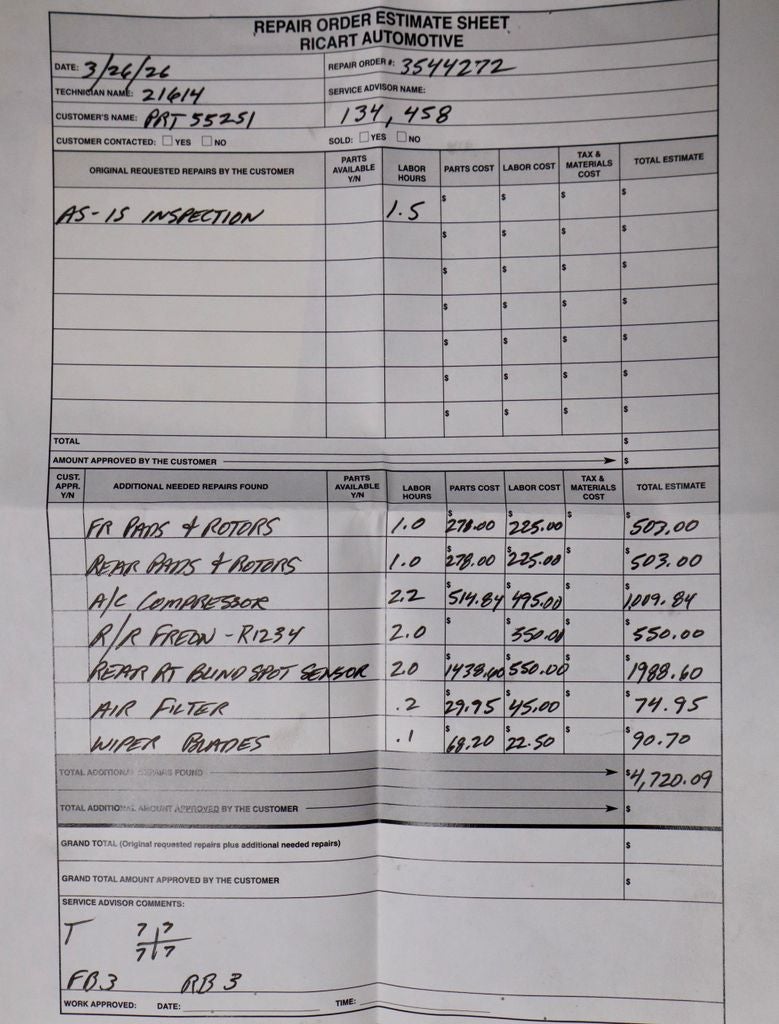 REPAIR ORDER ESTIMATE SHEET
RICART AUTOMOTIVE
DATE: 3/26/26 REPAIR ORDER #: 3544272
TECHNICIAN NAME: 21614 SERVICE ADVISOR NAME:
CUSTOMER'S NAME: PRT 55251 134,458
CUSTOMER CONTACTED: YES NO SOLD: YES NO
ORIGINAL REQUESTED REPAIRS BY THE CUSTOMER PARTS AVAILABLE Y/N LABOR HOURS PARTS COST LABOR COST TAX & MATERIALS COST TOTAL ESTIMATE
AS-IS INSPECTION 1.5 $ $ $ $
$ $ $ $
$ $ $ $
$ $ $ $
$ $ $ $
$ $ $ $
$ $ $ $
TOTAL $
AMOUNT APPROVED BY THE CUSTOMER $
CUST. APPR. Y/N ADDITIONAL NEEDED REPAIRS FOUND PARTS AVAILABLE Y/N LABOR HOURS PARTS COST LABOR COST TAX & MATERIALS COST TOTAL ESTIMATE
FR PADS & ROTORS 1.0 $278.00 $225.00 $ $503.00
REAR PADS & ROTORS 1.0 $278.00 $225.00 $ $503.00
A/C COMPRESSOR 2.2 $514.84 $495.00 $ $1009.84
R/R FREON - R1234 2.0 $ $350.00 $ $550.00
REAR RT BLIND SPOT SENSOR 2.0 $1438.60 $550.00 $ $1988.60
AIR FILTER .2 $29.95 $45.00 $ $74.95
WIPER BLADES .1 $68.20 $22.50 $ $90.70
TOTAL ADDITIONAL REPAIRS FOUND $4,720.09
TOTAL ADDITIONAL AMOUNT APPROVED BY THE CUSTOMER $
GRAND TOTAL (Original requested repairs plus additional needed repairs) $
GRAND TOTAL AMOUNT APPROVED BY THE CUSTOMER $
SERVICE ADVISOR COMMENTS:
T 7 7
7 7
FB3 RB 3
WORK APPROVED: DATE: TIME: